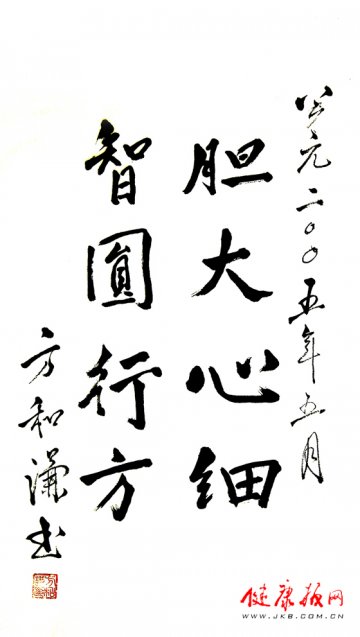 公元二〇〇五年五月
胆大心细
智圓行方
方和谦书
健康报网
WWW.JKB.COM.CN